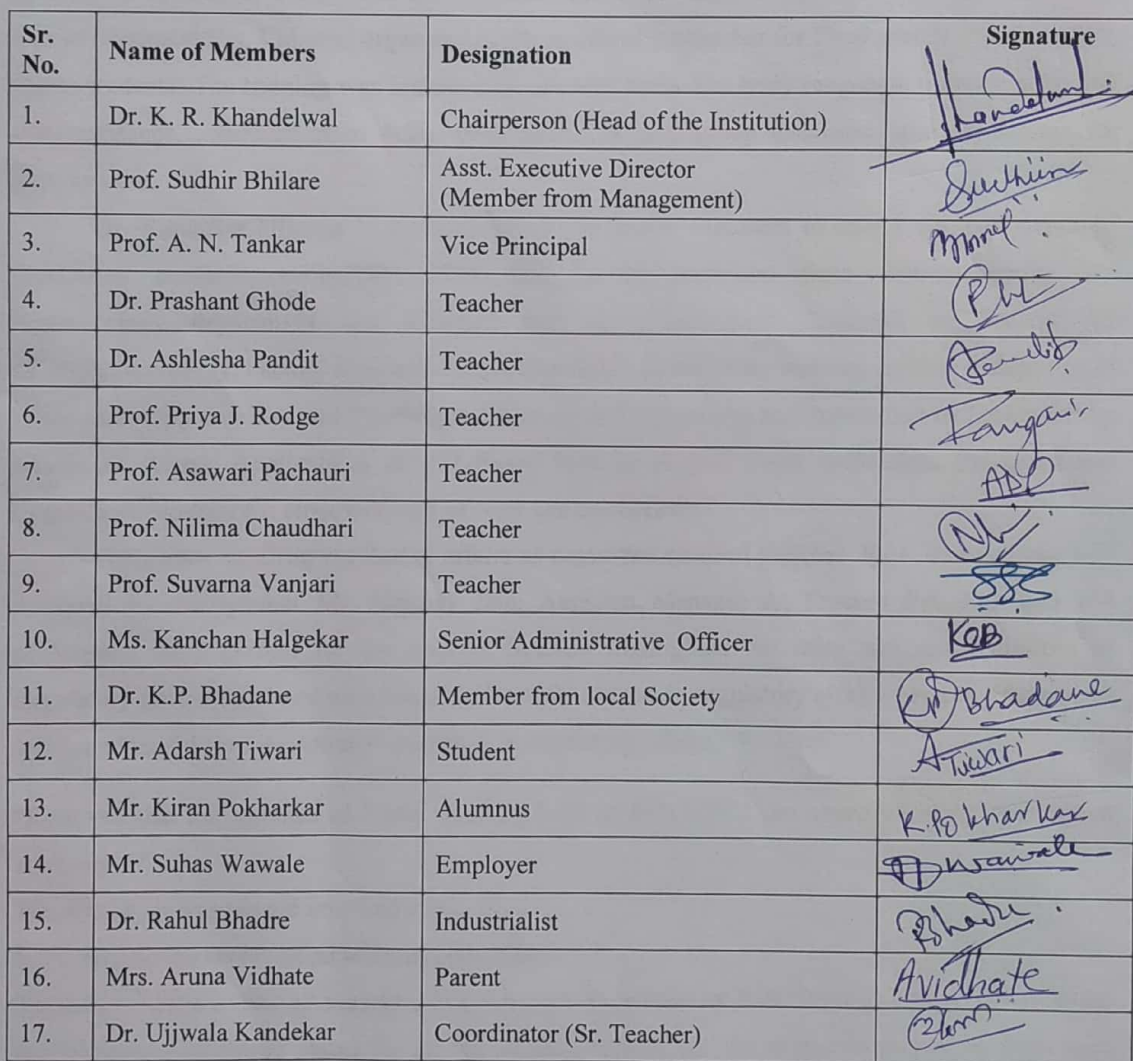 Sr. No. Name of Members Designation Signature
1. Dr. K. R. Khandelwal Chairperson (Head of the Institution) Khandelwal
2. Prof. Sudhir Bhilare Asst. Executive Director
(Member from Management) Sudhir
3. Prof. A. N. Tankar Vice Principal
4. Dr. Prashant Ghode Teacher
5. Dr. Ashlesha Pandit Teacher APandit
6. Prof. Priya J. Rodge Teacher
7. Prof. Asawari Pachauri Teacher ADP
8. Prof. Nilima Chaudhari Teacher
9. Prof. Suvarna Vanjari Teacher
10. Ms. Kanchan Halgekar Senior Administrative Officer
11. Dr. K.P. Bhadane Member from local Society KP Bhadane
12. Mr. Adarsh Tiwari Student ATiwari
13. Mr. Kiran Pokharkar Alumnus K.Pokharkar
14. Mr. Suhas Wawale Employer Wawale
15. Dr. Rahul Bhadre Industrialist RBhadre
16. Mrs. Aruna Vidhate Parent AVidhate
17. Dr. Ujjwala Kandekar Coordinator (Sr. Teacher)